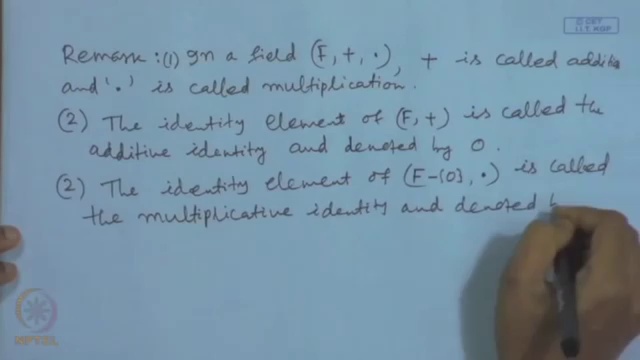 © CET
I.I.T. KGP
Remark : (1) In a field (F, +, ·), + is called additio
and '·' is called multiplication.
(2) The identity element of (F, +) is called the
additive identity and denoted by 0.
(2) The identity element of (F-{0}, ·) is called
the multiplicative identity and denoted b
NPTEL